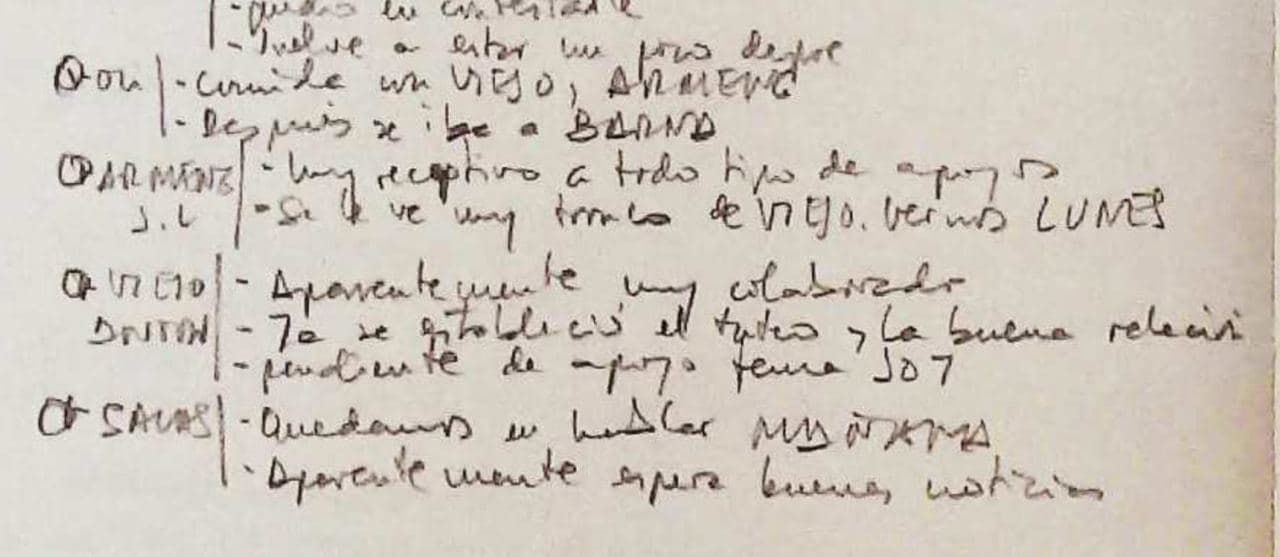 - quedo en contestarle
- Vuelve a estar un poco depre
OU - Comida con VIEJO, ARMENG
- Después se iba a BARNA
ARMENG - Muy receptivo a todo tipo de apoyos
J.L - Se le ve muy de VIEJO. Vernos LUNES
VIEJO - Aparentemente muy colaborador
ANTON - Ya se estableció el tuteo y la buena relación
- pendiente de apoyo tema JO7
SALAS - Quedamos en hablar MAÑANA
- Aparentemente espera buenas noticias